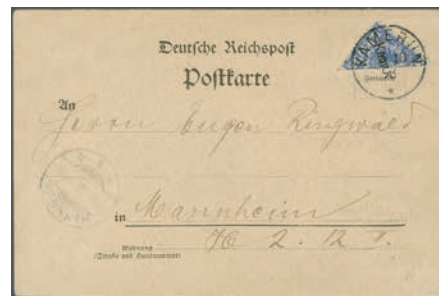 Deutsche Reichspost
Postkarte
KAMERUN
An
Herrn Eugen Ringwald
in Mannheim
H 2. 12
Wohnung
(Straße und Hausnummer)